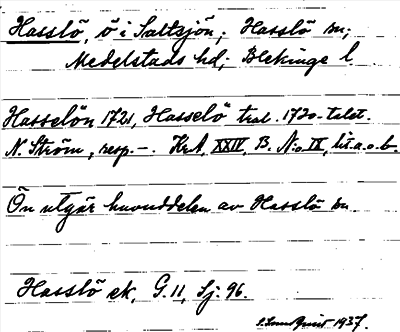 Hasslö, ö i Saltsjön; Hasslö sn;
Medelstads hd; Blekinge l
Hasselön 1721, Hasselö tral. 1720-talet.
N. Ström, resp. –. KrA, XXIV, B. No IX, lit. a. o. b.
Ön utgör huvuddelen av Hasslö sn.
Hasslö ek, G. 11, Sj: 96.
1937.